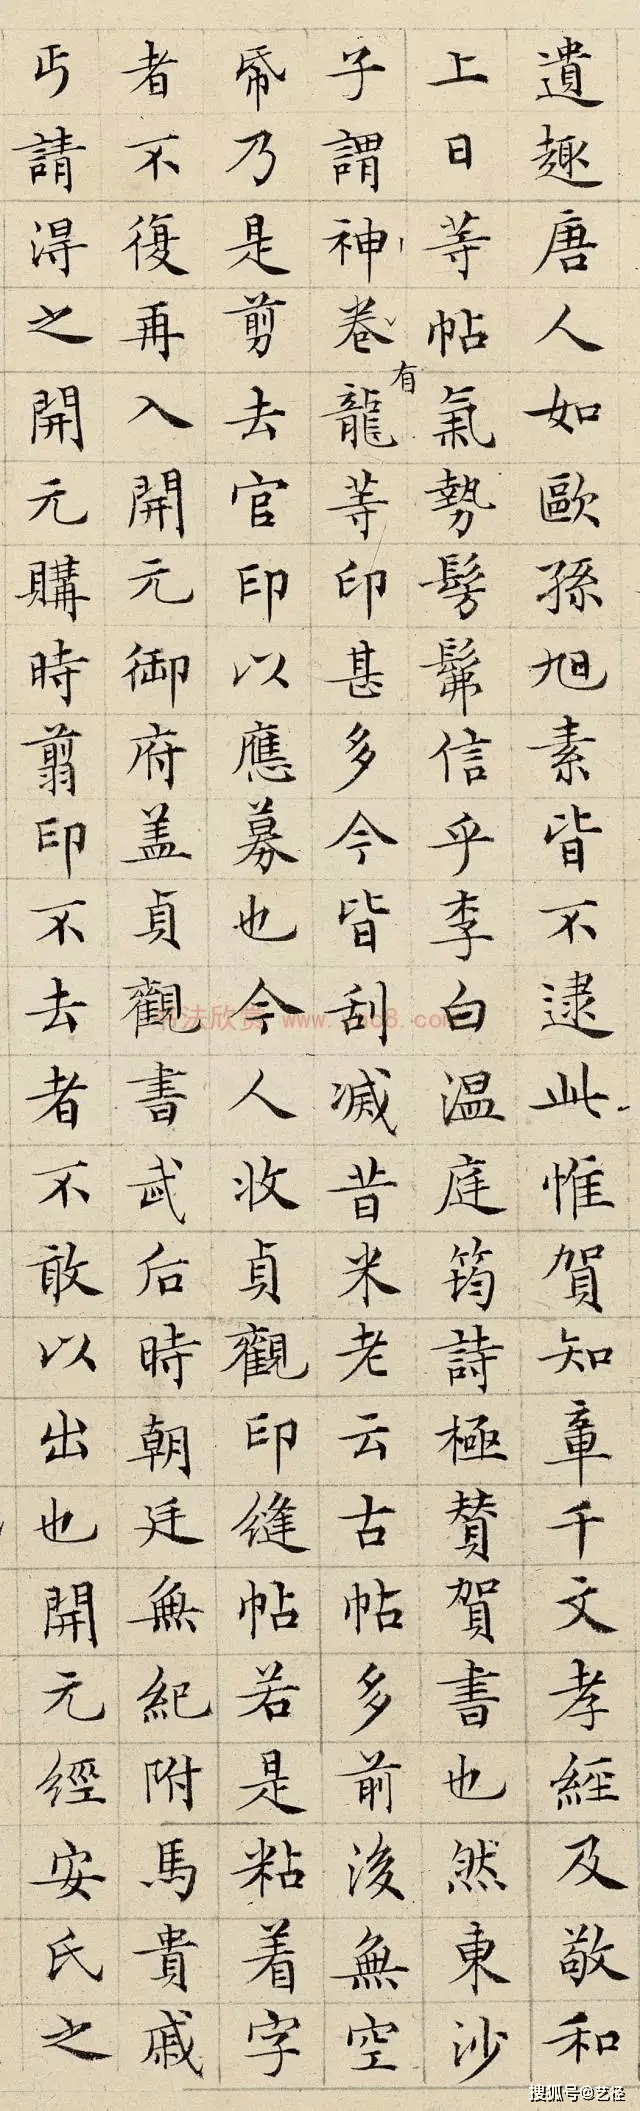 遺趣唐人如歐孫旭素皆不逮此惟賀知章千文孝經及敬和
上日等帖氣勢髣髴信乎李白温庭筠詩極賛賀書也然東沙
子謂神卷有龍等印甚多今皆刮滅昔米老云古帖多前後無空
帋乃是剪去官印以應募也今人收貞觀印縫帖若是粘着字
者不復再入開元御府盖貞觀書武后時朝廷無紀附馬貴戚
丐請得之開元購時翦印不去者不敢以出也開元經安氏之
搜狐号@艺径